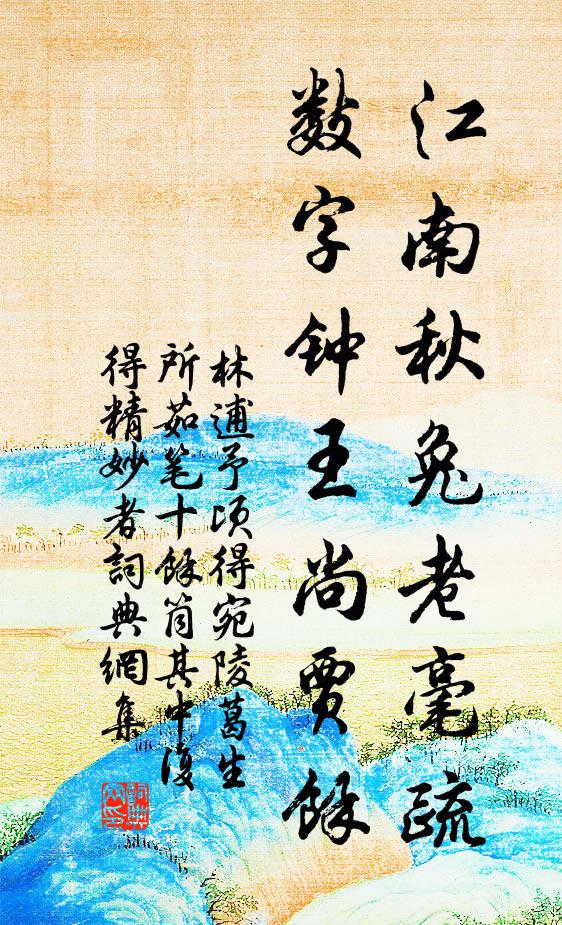 江南秋兔老毫疏
数字钟王尚贾餘
林逋予顷得宛陵葛生
所茹笔十餘筒其中復
得精妙者詞典網集